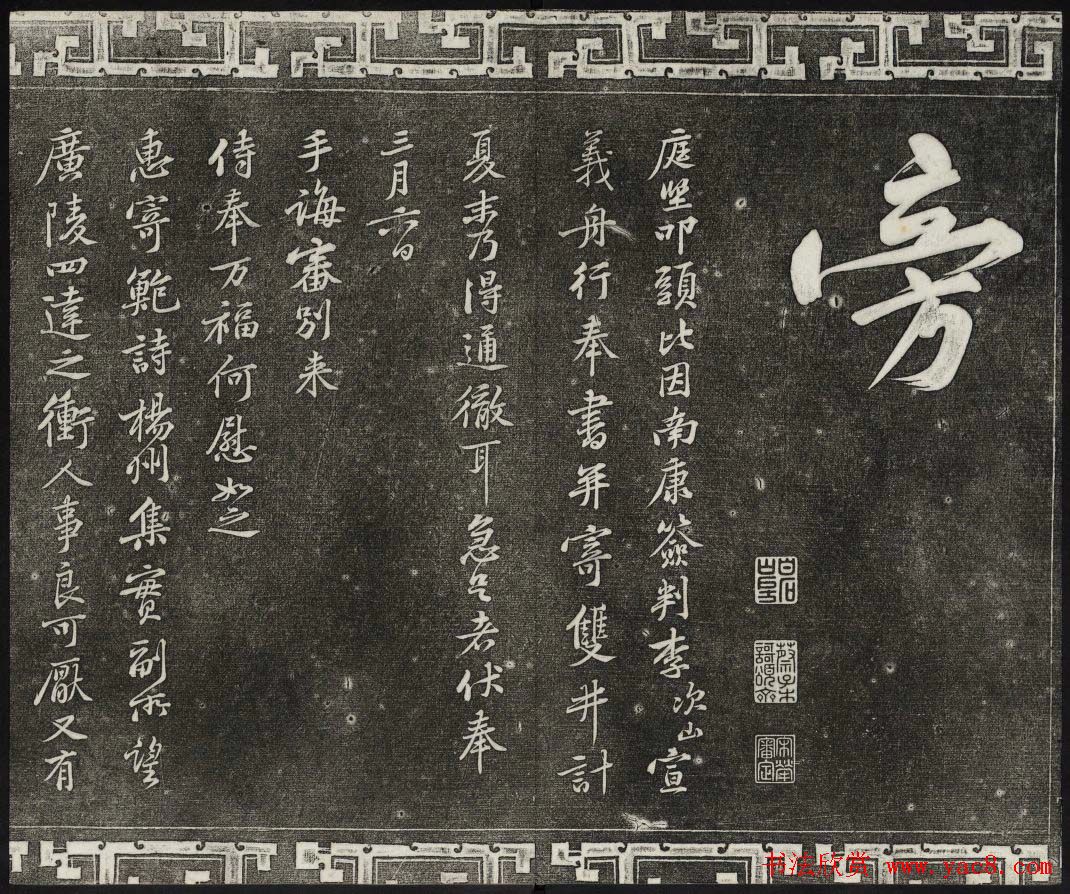 旁
宋犖審定
庭堅叩頭比因南康簽判李次山宣
義舟行奉書并寄雙井計
夏末乃得通徹耳急足者伏奉
三月六日
手誨審別来
侍奉万福何慰如之
惠寄鮑詩楊州集實副所望
廣陵四達之衝人事良可厭又有
书法欣赏 www.yac8.com